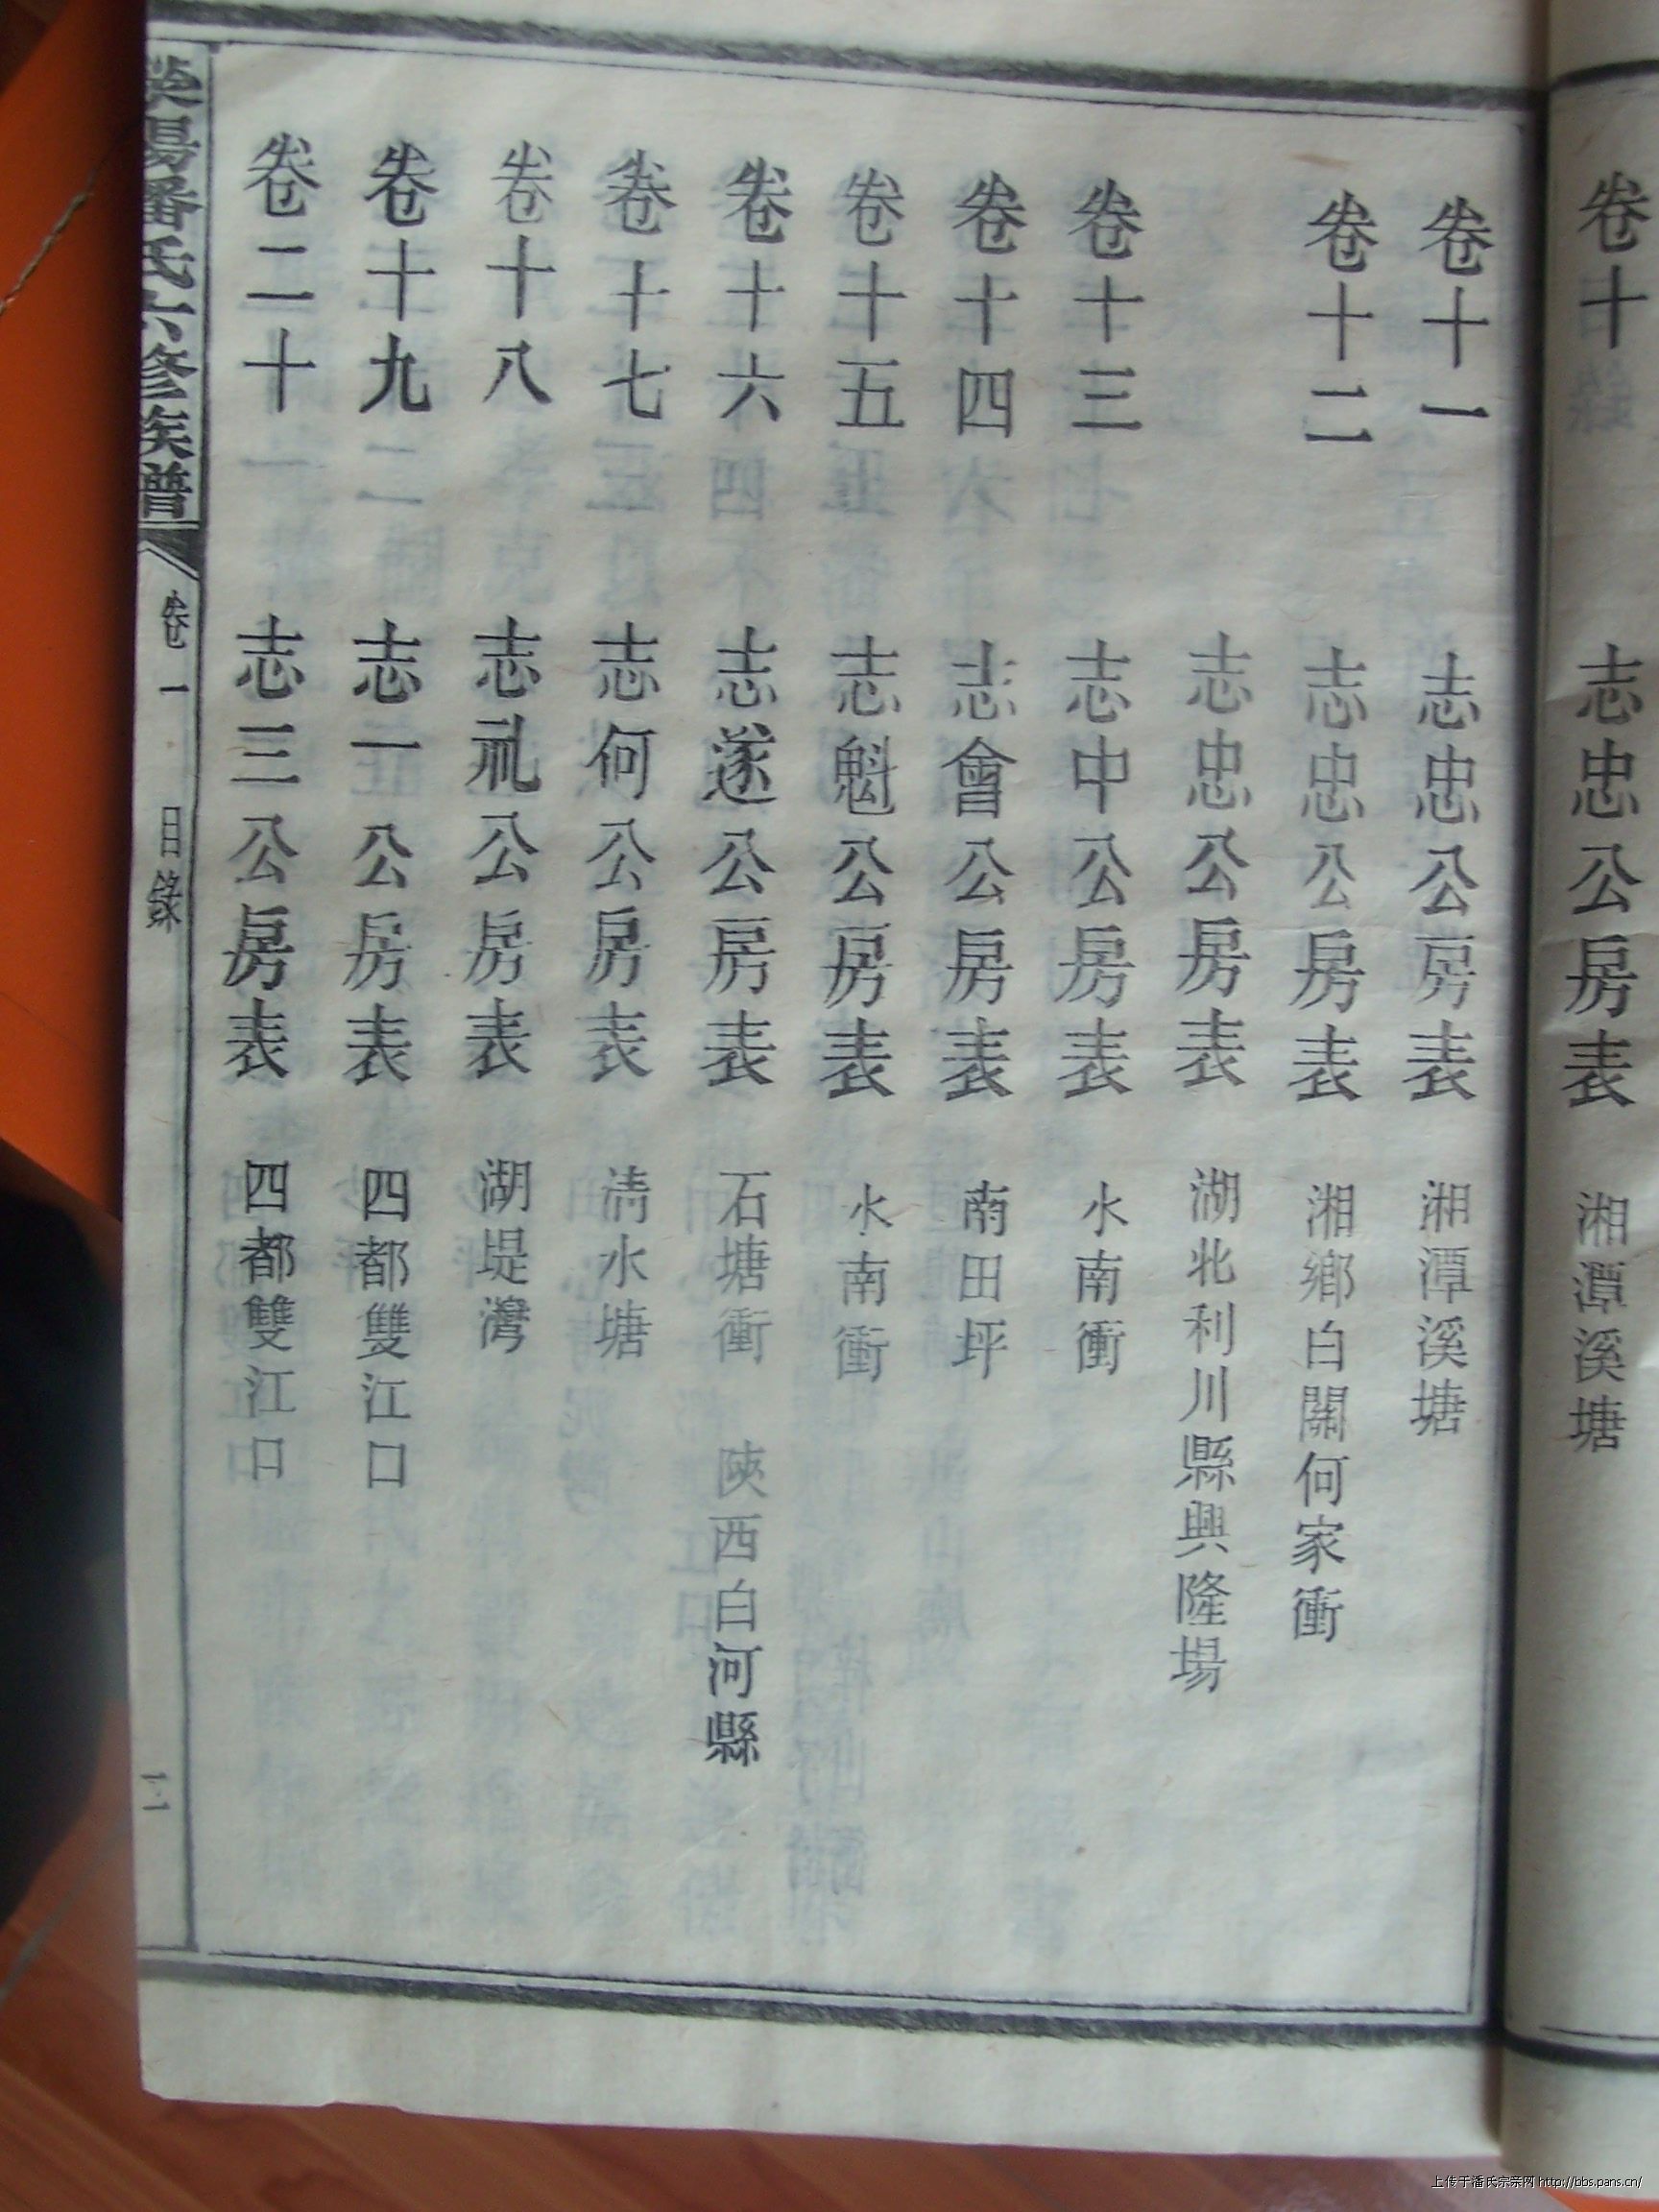 卷十 志忠公房表 湘潭溪塘
卷十一 志忠公房表 湘潭溪塘
卷十二 志忠公房表 湘鄉白關何家衝
志忠公房表 湖北利川縣興隆場
卷十三 志中公房表 水南衝
卷十四 志會公房表 南田坪
卷十五 志魁公房表 水南衝
卷十六 志遂公房表 石塘衝 陝西白河縣
卷十七 志何公房表 清水塘
卷十八 志礼公房表 湖堤灣
卷十九 志一公房表 四都雙江口
卷二十 志三公房表 四都雙江口
滎陽潘氏六修族譜 卷一 目錄
上传于潘氏宗亲网 http://bbs.pans.cn/